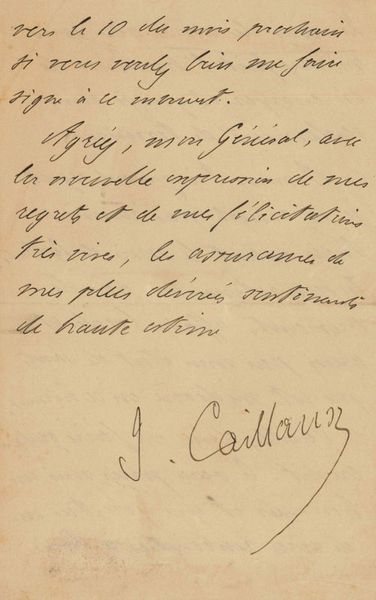 vers le 10 du mois prochain
si vous voulez bien me faire
signe à ce moment.
Agréez, mon Général, avec
la nouvelle expression de mes
regrets et de mes félicitations
très vives, les assurances de
mes plus dévoués sentiments
de haute estime
J. Caillaux